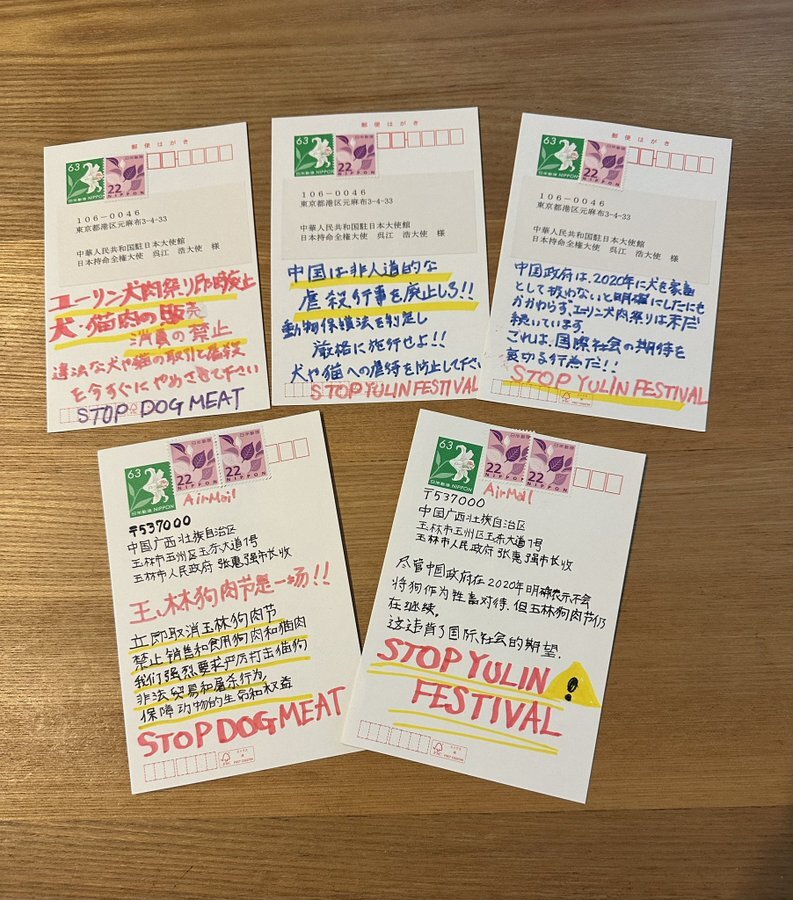 郵便はがき
63
日本郵便 NIPPON
日本郵便
22
NIPPON
106-0046
東京都港区元麻布3-4-33
中華人民共和国駐日本大使館
日本特命全権大使 呉江 浩大使 様
ユーリン犬肉祭り即時廃止
犬・猫肉の販売
消費の禁止
違法な犬や猫の取引と屠殺
を今すぐにやめさせて下さい
STOP DOG MEAT
郵便はがき
63
日本郵便 NIPPON
日本郵便
22
NIPPON
106-0046
東京都港区元麻布3-4-33
中華人民共和国駐日本大使館
日本特命全権大使 呉江 浩大使 様
中国は非人道的な
虐殺行事を廃止しろ!!
動物保護法を制定し
厳格に施行せよ!!
犬や猫への虐待を防止して下さい
STOP YULIN FESTIVAL
郵便はがき
63
日本郵便 NIPPON
日本郵便
22
NIPPON
106-0046
東京都港区元麻布3-4-33
中華人民共和国駐日本大使館
日本特命全権大使 呉江 浩大使 様
中国政府は、2020年に犬を家畜
として扱わないと明確にしたにも
かかわらず、ユーリン犬肉祭りは未だ
続いています。
これは、国際社会の期待を
裏切る行為だ!!
STOP YULIN FESTIVAL
63
日本郵便 NIPPON
日本郵便
22
NIPPON
日本郵便
22
NIPPON
AirMail
〒537000
中国广西壮族自治区
玉林市玉州区玉东大道1号
玉林市人民政府 张惠强市长收
玉林狗肉节是一场!!
立即取消玉林狗肉节
禁止销售和食用狗肉和猫肉
我们强烈要求严厉打击猫狗
非法贸易和屠杀行为,
保障动物的生命和权益
STOP DOG MEAT
63
日本郵便 NIPPON
日本郵便
22
NIPPON
日本郵便
22
NIPPON
AirMail
〒537000
中国广西壮族自治区
玉林市玉州区玉东大道1号
玉林市人民政府 张惠强市长收
尽管中国政府在2020年明确表示不会
将狗作为牲畜对待,但玉林狗肉节仍
在继续.
这违背了国际社会的期望.
STOP YULIN
FESTIVAL